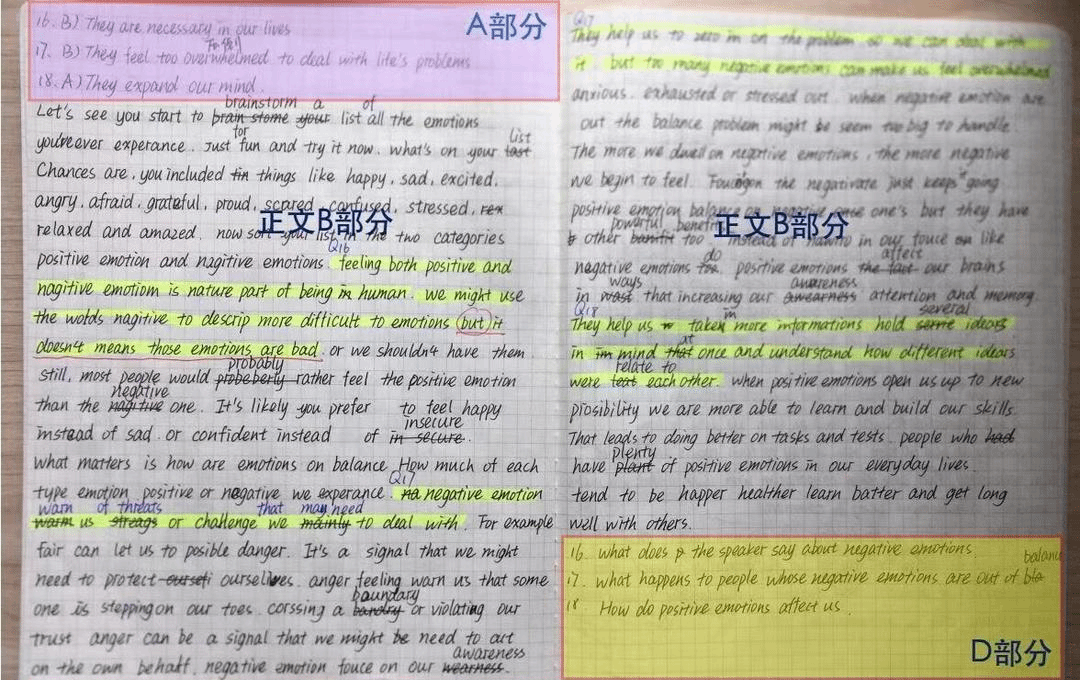 A部分
16. B) They are necessary in our lives
17. B) They feel too overwhelmed to deal with life's problems
18. A) They expand our mind.
brainstorm a of
Let's see you start to brain stome your list all the emotions
for
you've ever experance. Just fun and try it now. what's on your last
list
Chances are, you included tin things like happy, sad, excited,
angry, afraid, grateful, proud, scared, confused, stressed, rex
正文B部分
relaxed and amazed. now sort your list in the two categories
Q16
positive emotion and nagitive emotions feeling both positive and
nagitive emotiom is nature part of being in human. we might use
the words nagitive to descrip more difficult to emotions but it
doesn't means those emotions are bad. or we shouldn't have them
probably
still, most people would probeberly rather feel the positive emotion
negative
than the nagitive one. It's likely you prefer to feel happy
insecure
instead of sad. or confident instead of in secure.
what matters is how are emotions on balance. How much of each
Q17
type emotion positive or nagative we experance. na negative emotion
warn of threats that may need
warm us streags or challenge we mainly to deal with. For example
fair can let us to posible danger. It's a signal that we might
need to protect ourseti ourselves. anger feeling warn us that some
boundary
one is stepping on our toes. corssing a bandry or violating our
trust anger can be a signal that we might be need to act
awareness
on the own behalf. negative emotion fouce on our wearness.
Q17
They help us to zero in on the problem so we can deal with
it. but too many negative emotions can make us feel overwhelmed
anxious. exhausted or stressed out. when negative emotion are
out the balance problem might be seem too big to handle.
The more we dwell on negative emotions, the more negative
we begin to feel. on the negativate just keeps it going
positive emotion balance on negative once one's but they have
powerful benefits
other too. instead of in our fouce on like
正文B部分
do affect
negative emotions too. positive emotions the fact our brains
ways awareness
in wast that increasing our awearness attention and memory
Q18
in several
They help us taken more informations hold serve idears
at
in im mind that once and understand how different idears
relate to
were test each other. when positive emotions open us up to new
prosibility we are more able to learn and build our skills.
That leads to doing better on tasks and tests. people who had
plenty
have plant of positive emotions in our everyday lives.
tend to be happer healther learn batter and get long
well with others.
16. what does the speaker say about negative emotions.
balanc
17. what happens to people whose negative emotions are out of bla
18 How do positive emotions affect us.
D部分